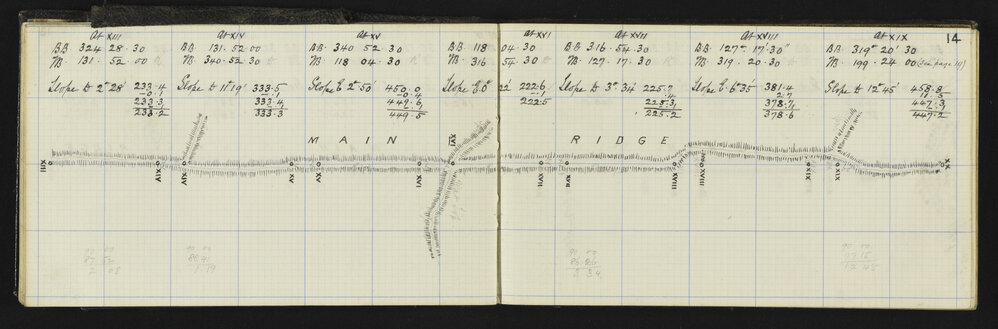 At XIII
BB 324 28 30
FB 131 52 00
Slope to 2° 28' 233.4
-0.1
233.3
233.2
At XIV
BB 131. 52 00
FB 340. 52. 30
Slope to 11° 19' 333.5
-.1
333.4
333.3
At XV
BB 340 52 30
FB 118 04. 30
Slope E 2° 50' 450.0
-0.4
449.6
449.5
At XVI
BB 118 04 30
FB 316 54 30
222.6
-.1
222.5
At XVII
BB 316. 54. 30
FB 127. 17. 30
Slope to 3° 34' 225.7
225.3
225.2
At XVIII
BB 127° 17' 30"
FB 319. 20. 30
Slope E 6° 35' 381.4
2.7
378.7
378.6
At XIX
BB 319° 20' 30
FB 199. 24 00 (see page 19)
Slope to 12° 45' 458.8
11.5
447.3
447.2
14
MAIN RIDGE
XIII
XIV
XIV
XV
XV
XVI
XVI
XVII
XVII
XVIII
XVIII
XIX
XIX
XX
90 00
12 45